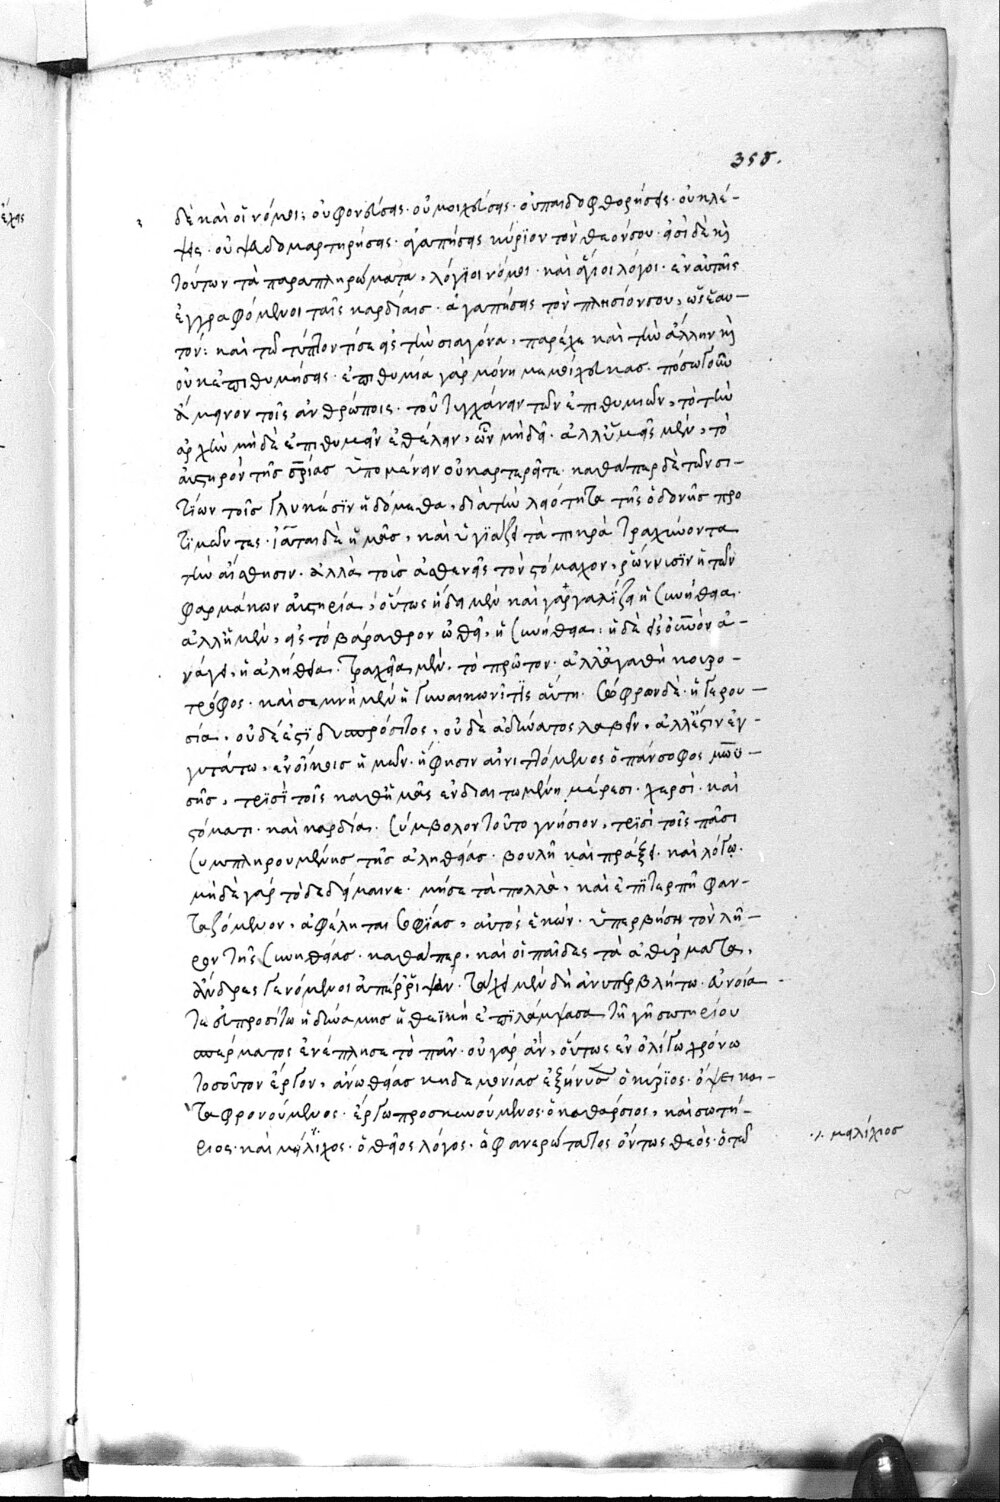 358.
δὲ καὶ οἱ νόμοι; οὐ φονεύσεις· οὐ μοιχεύσεις· οὐ παιδοφθορήσεις· οὐ κλέ-
ψεις· οὐ ψευδομαρτηρήσεις· ἀγαπήσεις κύριον τὸν θεόν σου· εἰσὶ δὲ κὶ
τούτων τὰ παραπληρώματα, λόγϊοι νόμοι· καὶ ἅγιοι λόγοι· ἐν αὐταῖς
ἐγγραφόμενοι ταῖς καρδίαις· ἀγαπήσεις τὸν πλησίον σου, ὡς ἑαυ-
τόν: καὶ τῶ τύπτοντί σε εἰς τὴν σιαγόνα, παρέχε καὶ τὴν ἄλλην κὶ
οὐκ ἐπιθυμήσεις· ἐπιθυμία γὰρ μόνη μεμοίχευκας· πόσω γοῦν
ἄμεινον τοῖς ἀνθρώποις· τοῦ τυγχάνειν τῶν ἐπιθυμιῶν, τὸ τὴν
ἀρχὴν μηδὲ ἐπιθυμεῖν ἐθέλειν, ὧν μὴ δεῖ· ἀλλ' ὑμεῖς μὲν, τὸ
αὐστηρὸν τῆς σρίας ὑπομένειν οὐ καρτερεῖτε· καθάπερ δὲ τῶν σι-
τίων τοῖς γλυκέσϊν ἡδόμεθα, διὰ τὴν λειότητα τῆς ἡδονῆς προ
τϊμῶντες· ἰᾶται δὲ ἡμᾶς, καὶ ὑγϊάζει τὰ πικρὰ τραχύνοντα
τὴν αἴσθησιν· ἀλλὰ τοὺς ἀσθενεῖς τὸν στόμαχον, ῥώννυσϊν ἡ τῶν
φαρμάκων αὐστηρία, οὕτως ἥδει μὲν καὶ γαργαλίζει ἡ συνήθεια·
ἀλλ' ἡ μὲν, εἰς τὸ βάραθρον ὠθεῖ, ἡ συνήθεια: ἡ δὲ εἰς οὐνὸν ἀ-
νάγει, ἡ ἀλήθεια· τραχεῖα μὲν, τὸ πρῶτον· ἀλλ' ἀγαθὴ κουρο-
τρόφος· καὶ σεμνὴ μὲν ἡ γυναικωνῖτις αὕτη· σώφρων δὲ ἡ γερου-
σία, οὐδέ ἐστϊ δυσπρόσιτος, οὐδὲ ἀδύνατος λαβεῖν, ἀλλ' ἔστιν ἐγ-
γυτάτω, ἐν οἴκοις ἡμῶν· ᾗ φησιν αἰνιττόμενος ὁ πάνσοφος μωϋ-
σῆς, τρϊσὶ τοῖς καθ' ἡμᾶς ἐνδιαιτωμένη μέρεσι· χερσὶ· καὶ
στόματι· καὶ καρδία· σύμβολον τοῦτο γνήσιον, τρϊσὶ τοῖς πᾶσι
συμπληρουμένης τῆς ἀληθείας· βουλῆ καὶ πράξει· καὶ λόγω·
μηδὲ γὰρ τόδε δείμαινε· μή σε τὰ πολλὰ, καὶ ἐπϊτερπῆ φαν-
ταζόμενον, ἀφέληται σοφϊας, αὐτὸς ἑκὼν· ὑπερβήση τὸν λῆ-
ρον τῆς συνηθείας· καθάπερ, καὶ οἱ παῖδες τὰ ἀθύρματα,
ἄνδρες γενόμενοι ἀπέρρϊψαν· τάχει μὲν δὴ ἀνυπερβλήτω· εὐνοία
τε εὐπροσίτω ἡ δύναμις ἡ θεϊκὴ ἐπϊλάμψασα τὴν γῆν σωτηρίου
σπέρματος ἐνέπλησε τὸ πᾶν· οὐ γὰρ ἂν, οὕτως ἐν ὀλίγω χρόνω
τοσοῦτον ἔργον, ἄνω θείας κηδεμονίας ἐξήνυσ' ὁ κύριος· ὄψει κα-
ταφρονούμενος· ἔργω προσκυνούμενος· ὁ καθάρσιος, καὶ σωτή-
ριος· καὶ μειλίχος· ὁ θεῖος λόγος· ὁ φανερώτατος ὄντως θεὸς· ὁ τῶ
·/· μειλίχιος